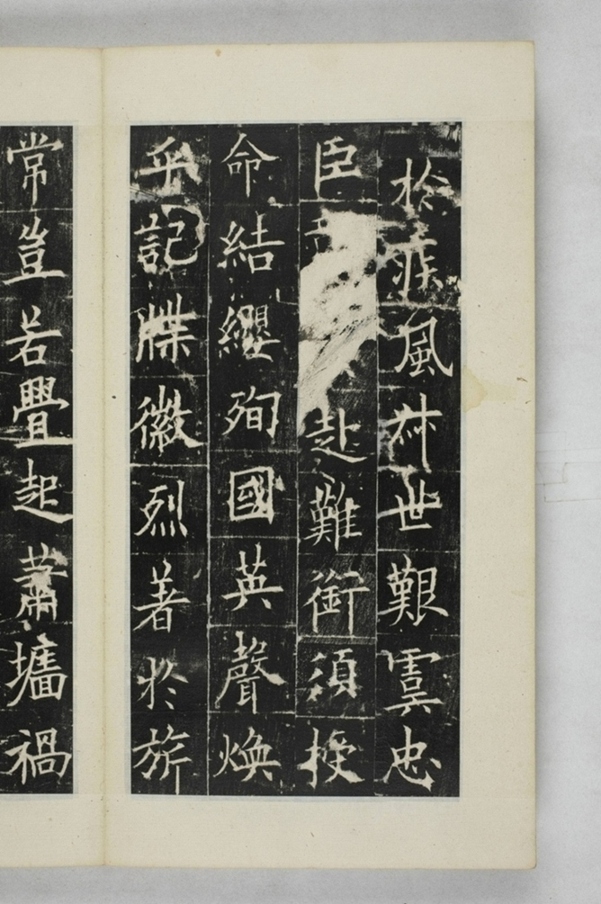 於疾風叔世艱虞忠
臣赴難銜須授
命結纓殉國英聲煥
乎記牒徽烈著於旂
常豈若舋起蕭墻禍